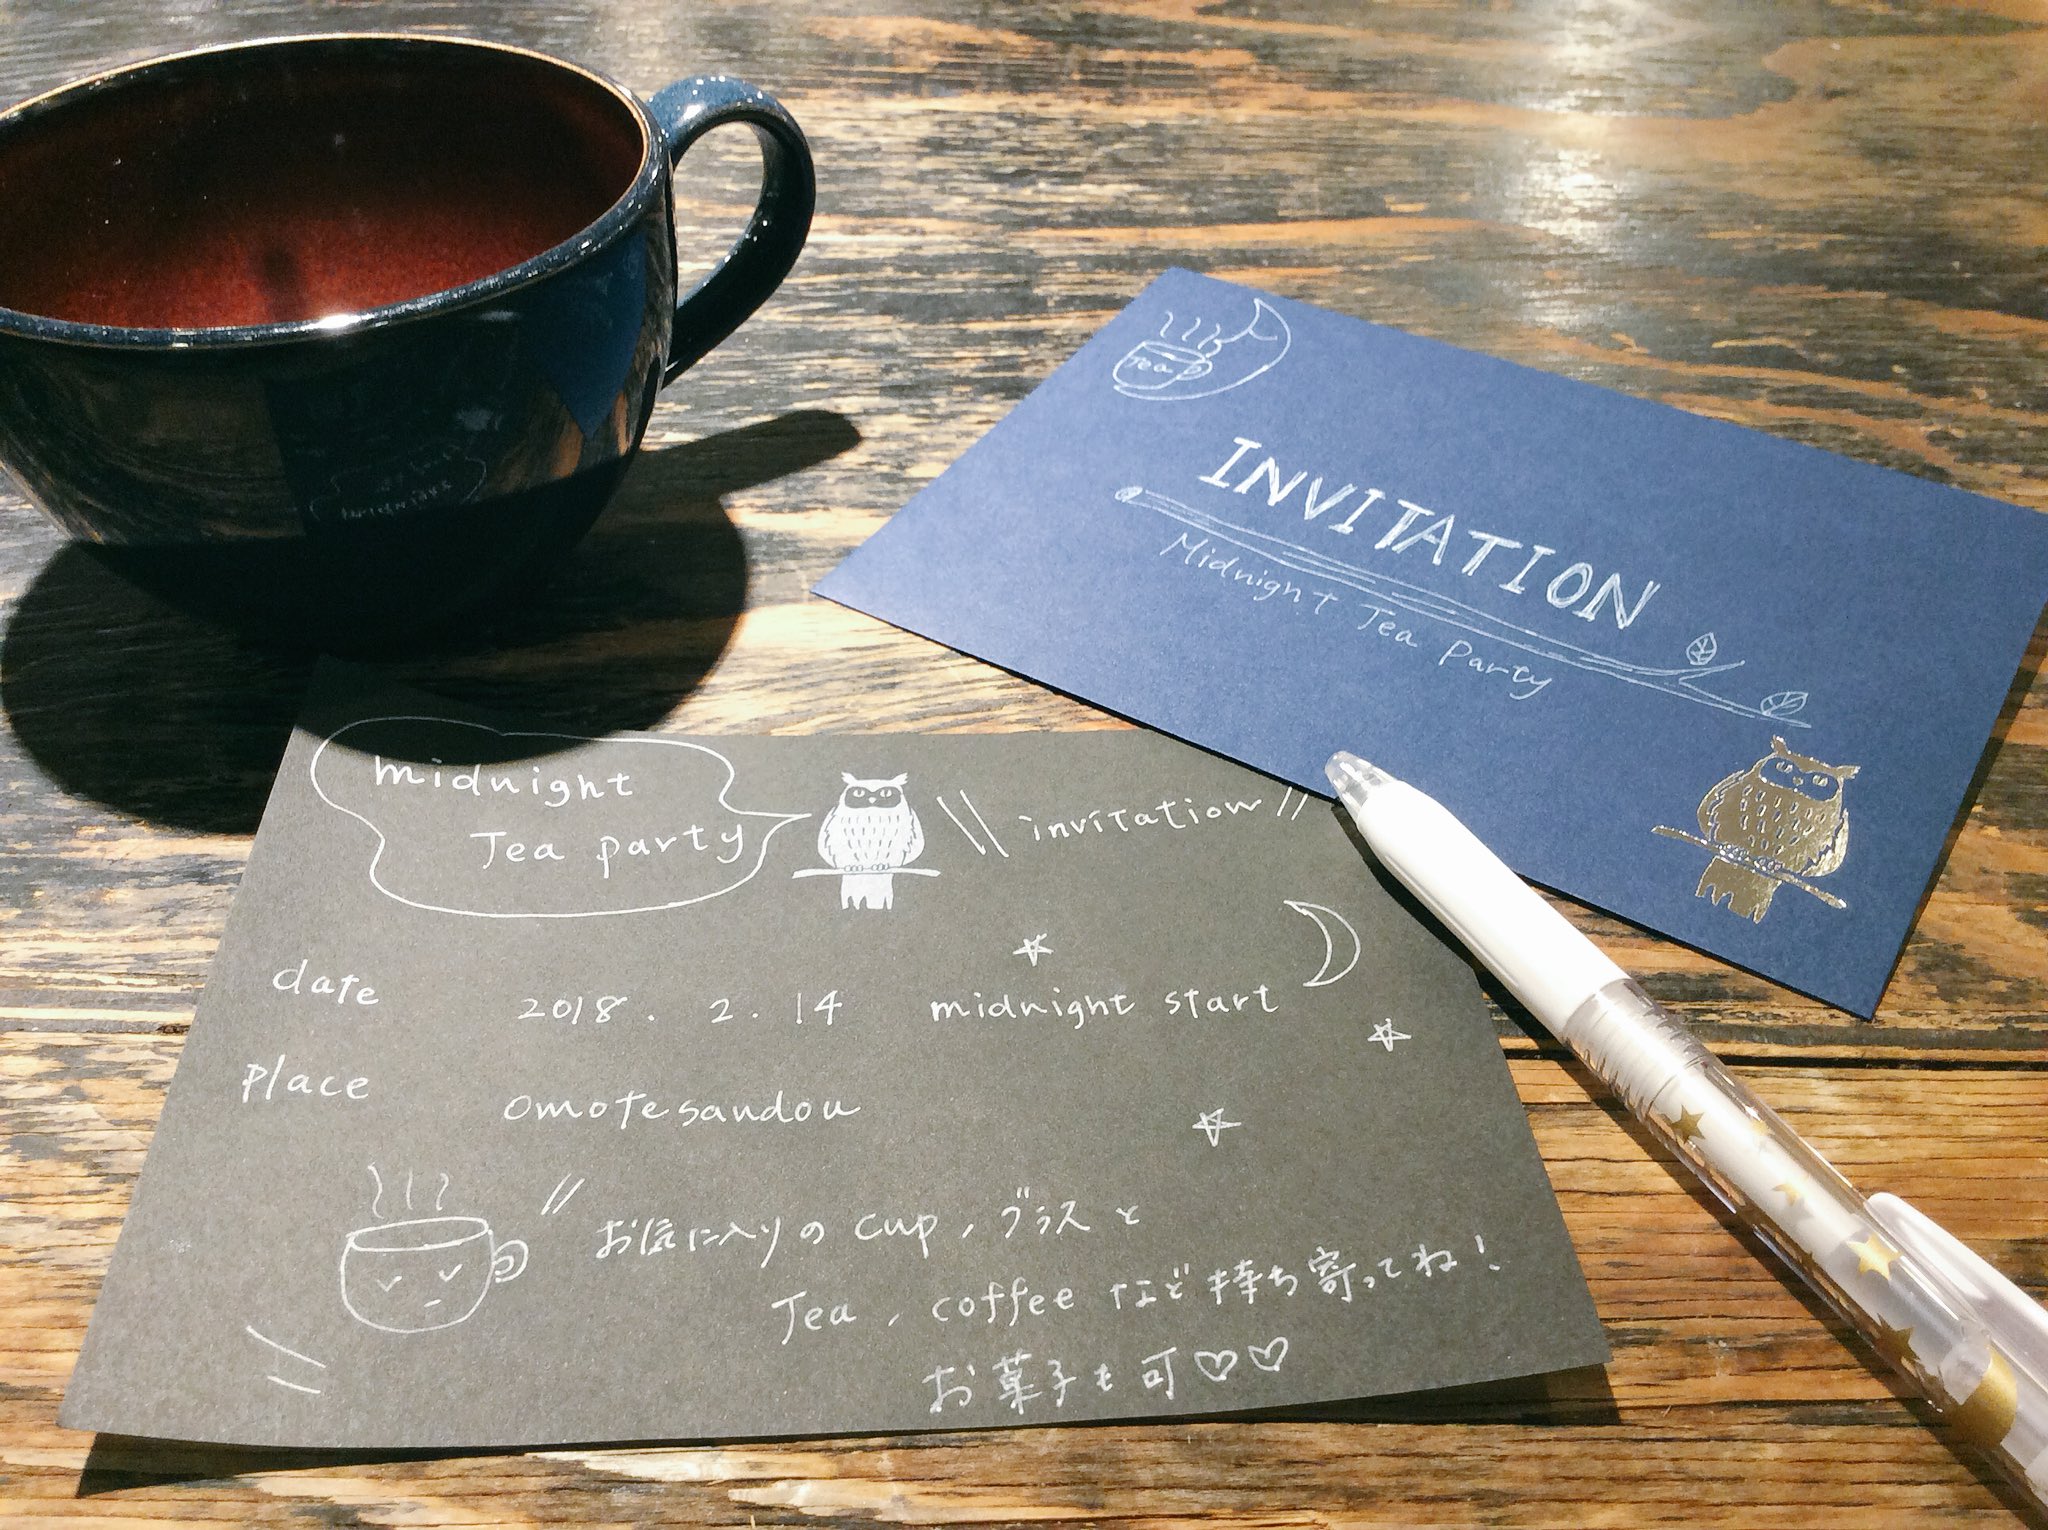 Tea
INVITATION
Midnight Tea Party
midnight
Tea party
invitation
date 2018. 2. 14 midnight start
place omotesandou
お気に入りの cup, グラスと
Tea, coffee など持ち寄ってね!
お菓子も可♡♡